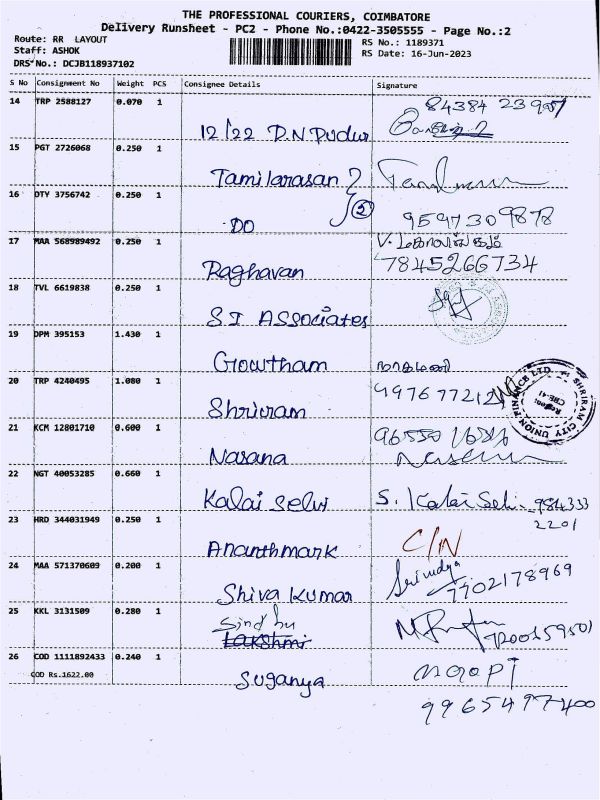 THE PROFESSIONAL COURIERS, COIMBATORE
Delivery Runsheet - PC2 - Phone No.:0422-3505555 - Page No.:2
Route: RR LAYOUT
Staff: ASHOK
DRS No.: DCJB118937102
RS No.: 1189371
RS Date: 16-Jun-2023
S No Consignment No Weight PCS Consignee Details Signature
14 TRP 2588127 0.070 1
12/22 D.N.Pudur
15 PGT 2726068 0.250 1
Tamilarasan
16 DTY 3756742 0.250 1
DO 2 9597309878
17 MAA 568989492 0.250 1
Raghavan 7845266734
18 TVL 6619838 0.250 1
SI Associates
19 DPM 395153 1.430 1
Gowtham
20 TRP 4240495 1.080 1
Shriram
SHRIRAM CITY UNION FINANCE LTD
21 KCM 12801710 0.600 1
Nasana
22 NGT 40053285 0.660 1
Kalai Selvi S. Kalai Selvi 984333
2201
23 HRD 344031949 0.250 1
Ananthmark C/N
24 MAA 571370609 0.200 1
Shiva Kumar Srividya 7702178969
25 KKL 3131509 0.280 1
Sindhu
Lakshmi
26 COD 1111892433 0.240 1
COD Rs.1622.00
Suganya
9965497400